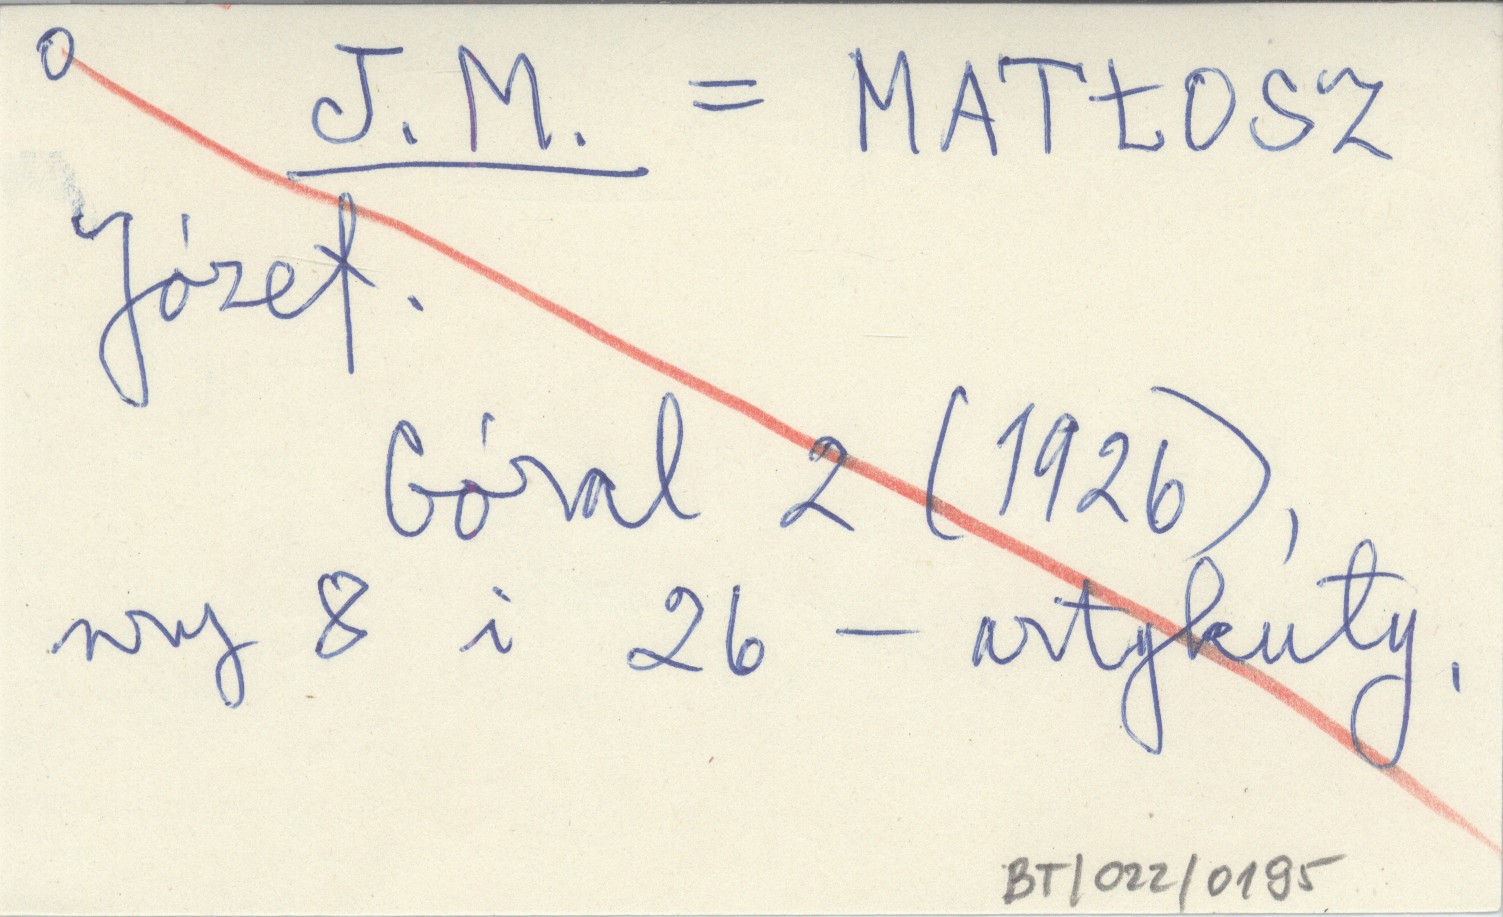 O J.M. = MATŁOSZ
Józef.
Góral 2 (1926),
nry 8 i 26 — artykuły.
BT/022/0195